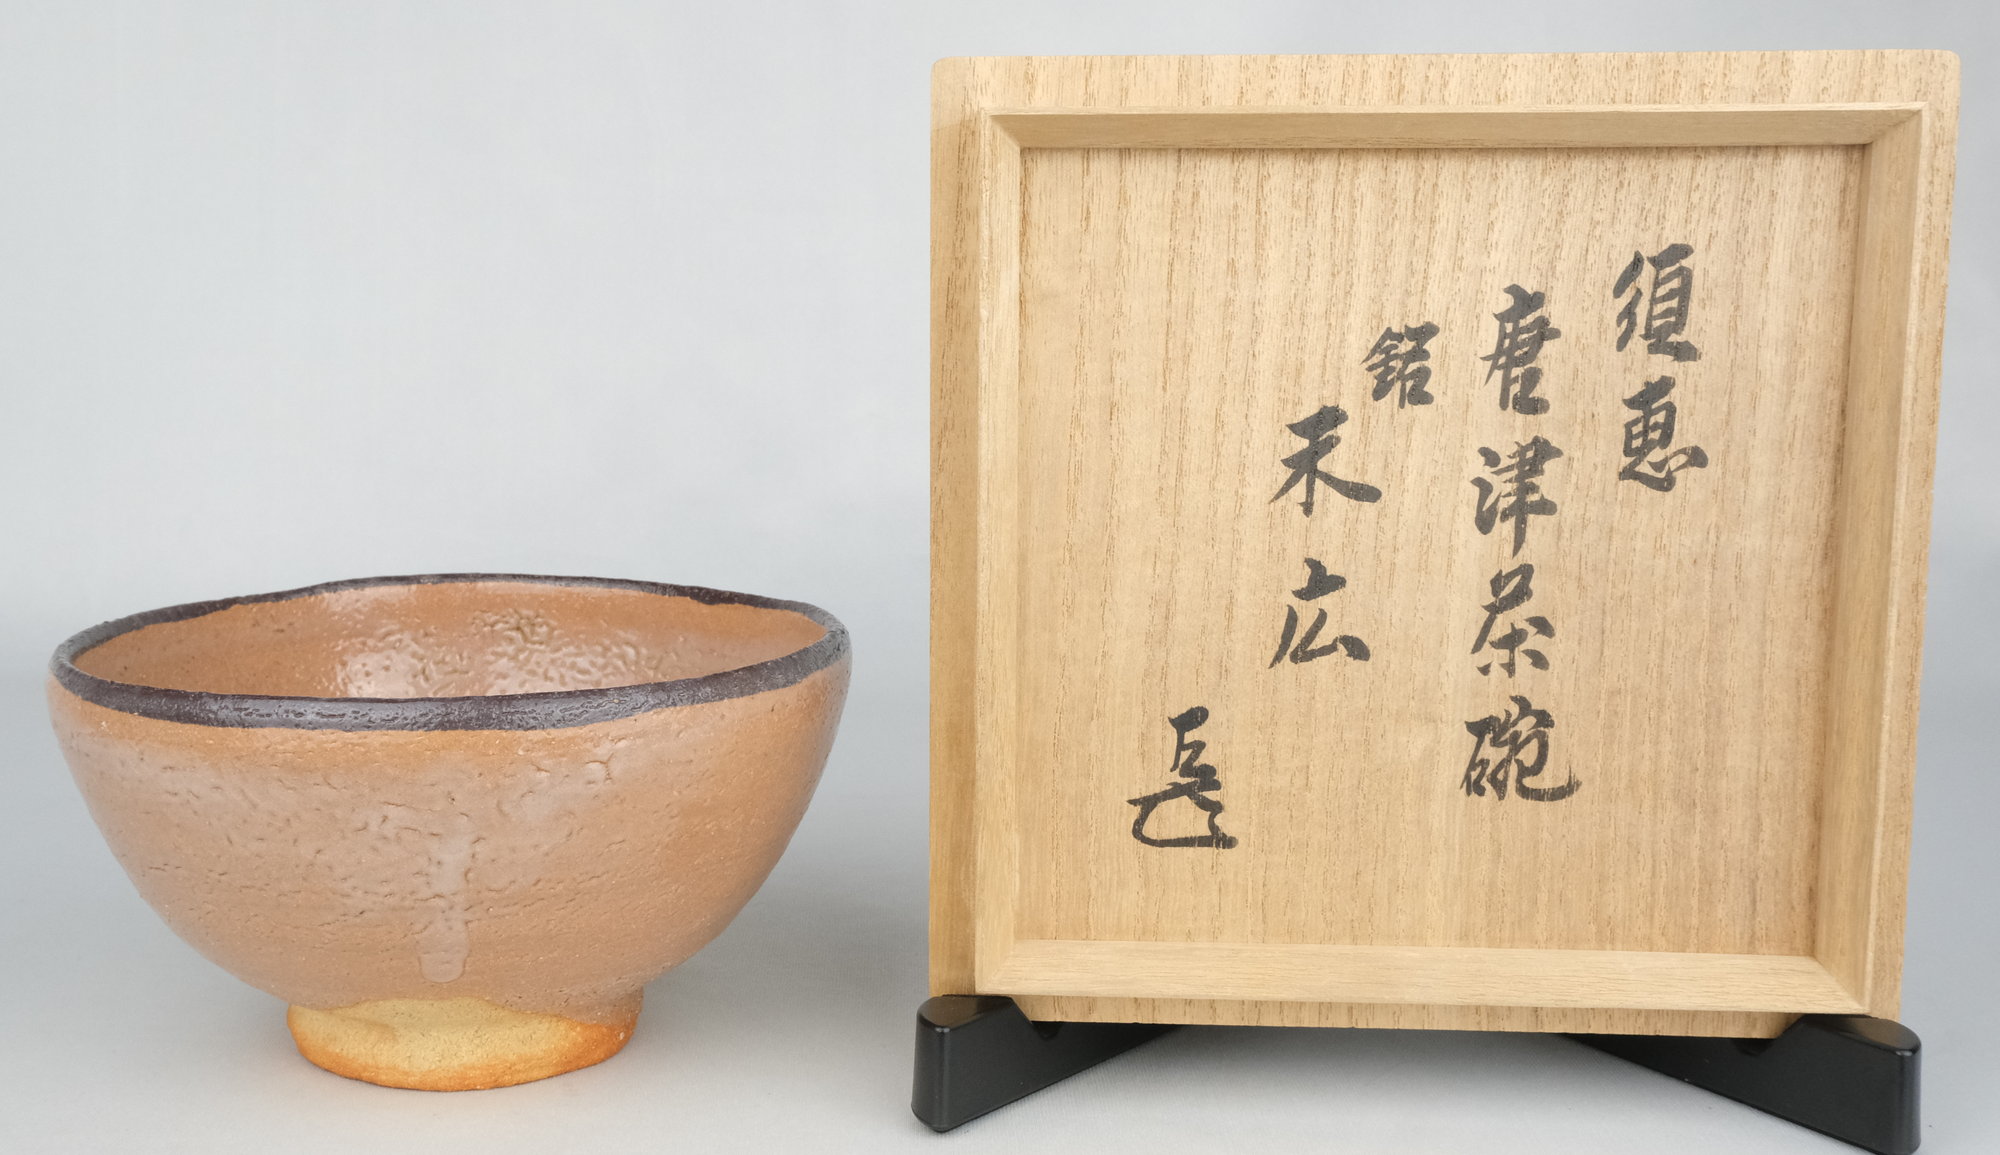 須恵
唐津茶碗
銘
末広